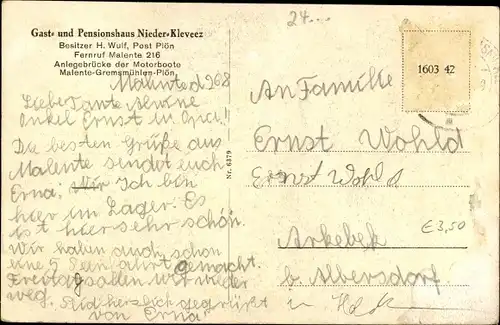 Gast- und Pensionshaus Nieder-Kleveez
Besitzer H. Wulf, Post Plön
Fernruf Malente 216
Anlegebrücke der Motorboote
Malente-Gremsmühlen-Plön
Malente d 268
Liebe Tante Alwine
Onkel Ernst u.
Die besten Grüße aus
Malente sendet euch
Erna. Wir Ich bin
hier im Lager. Es
ist hier sehr schön.
Wir haben auch schon
eine 5 Seen fahrt gemacht.
Freitag sollen wir wieder
weg. Seid herzlich gegrüßt
von Erna.
Nr. 6379
24...
1603 42
An Familie
Ernst Wohld
Ernst Wohld
Arkebek
b. Albersdorf
€ 3,50